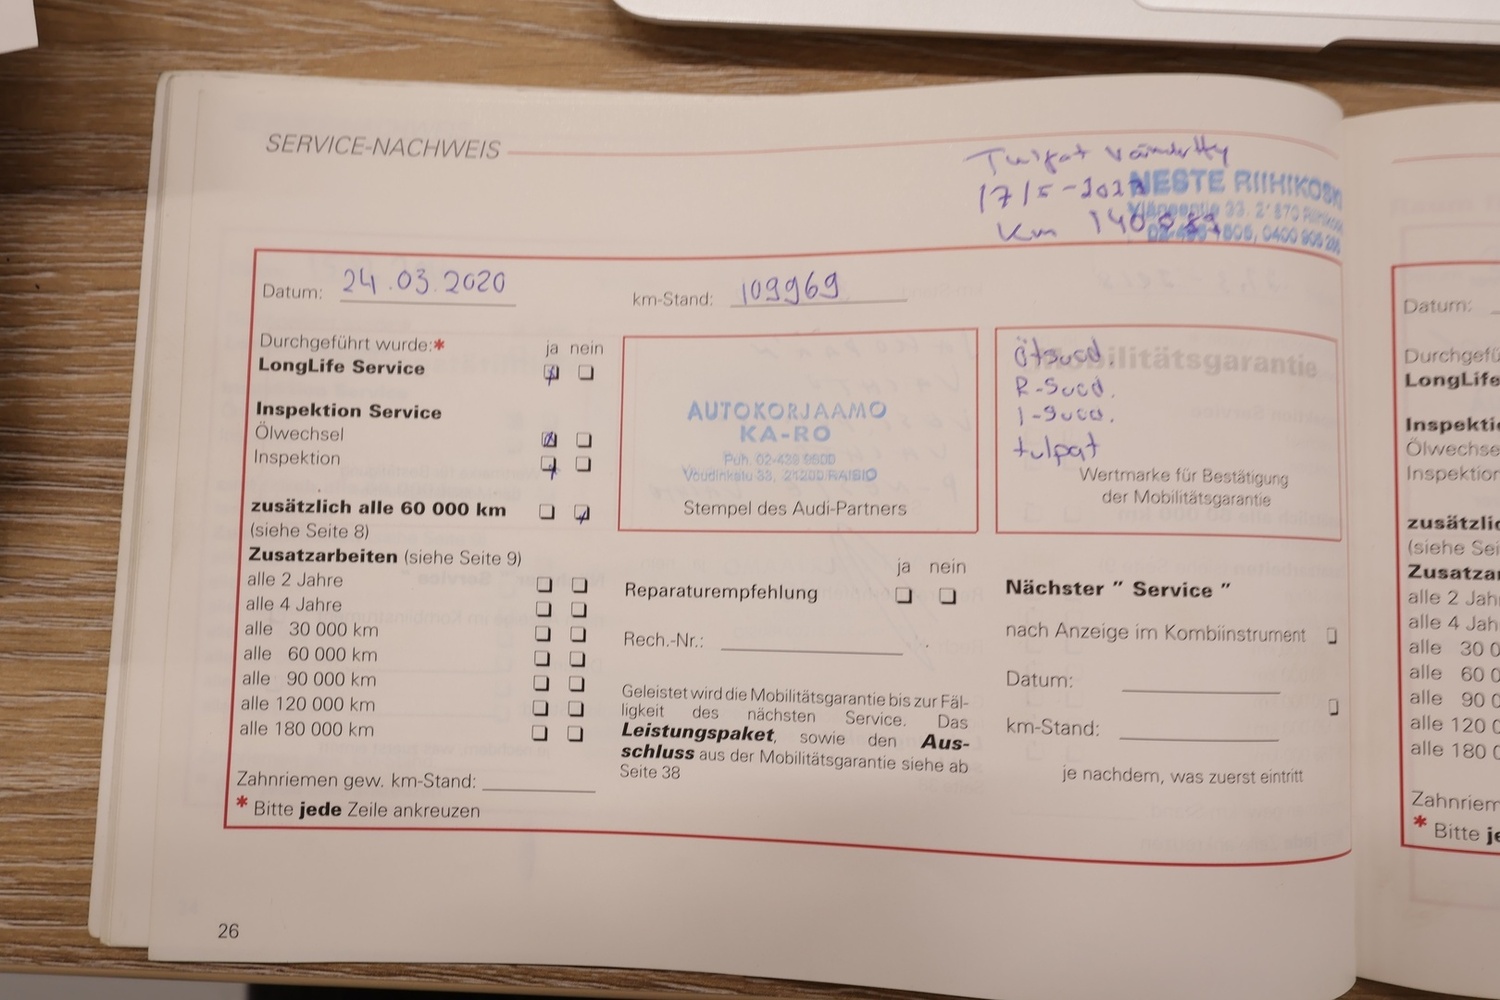 SERVICE-NACHWEIS
Tulpat
17/5-202
NESTE RIIHIKOSKI
Km 140
Datum: 24.03.2020
km-Stand: 109969
Durchgeführt wurde:*
ja nein
LongLife Service
Inspektion Service
Ölwechsel
Inspektion
zusätzlich alle 60 000 km
(siehe Seite 8)
Zusatzarbeiten (siehe Seite 9)
alle 2 Jahre
alle 4 Jahre
alle 30 000 km
alle 60 000 km
alle 90 000 km
alle 120 000 km
alle 180 000 km
Zahnriemen gew. km-Stand:
* Bitte jede Zeile ankreuzen
AUTOKORJAAMO
KA-RO
Puh. 02-439 9600
33, 21200 RAISIO
Stempel des Audi-Partners
Mobilitätsgarantie
Ötsuod.
R-Suod.
I-Suod.
tulpat
Wertmarke für Bestätigung
der Mobilitätsgarantie
ja nein
Reparaturempfehlung
Rech.-Nr.:
Geleistet wird die Mobilitätsgarantie bis zur Fäl-
ligkeit des nächsten Service. Das
Leistungspaket, sowie den Aus-
schluss aus der Mobilitätsgarantie siehe ab
Seite 38
Nächster " Service "
nach Anzeige im Kombiinstrument
Datum:
km-Stand:
je nachdem, was zuerst eintritt
26
Datum:
Durchgefü
LongLife
Inspekti
Ölwechse
Inspektion
zusätzlic
(siehe Sei
Zusatzar
alle 2 Jah
alle 4 Jah
alle 30 0
alle 60 0
alle 90 0
alle 120 0
alle 180 0
Zahnriem
* Bitte je